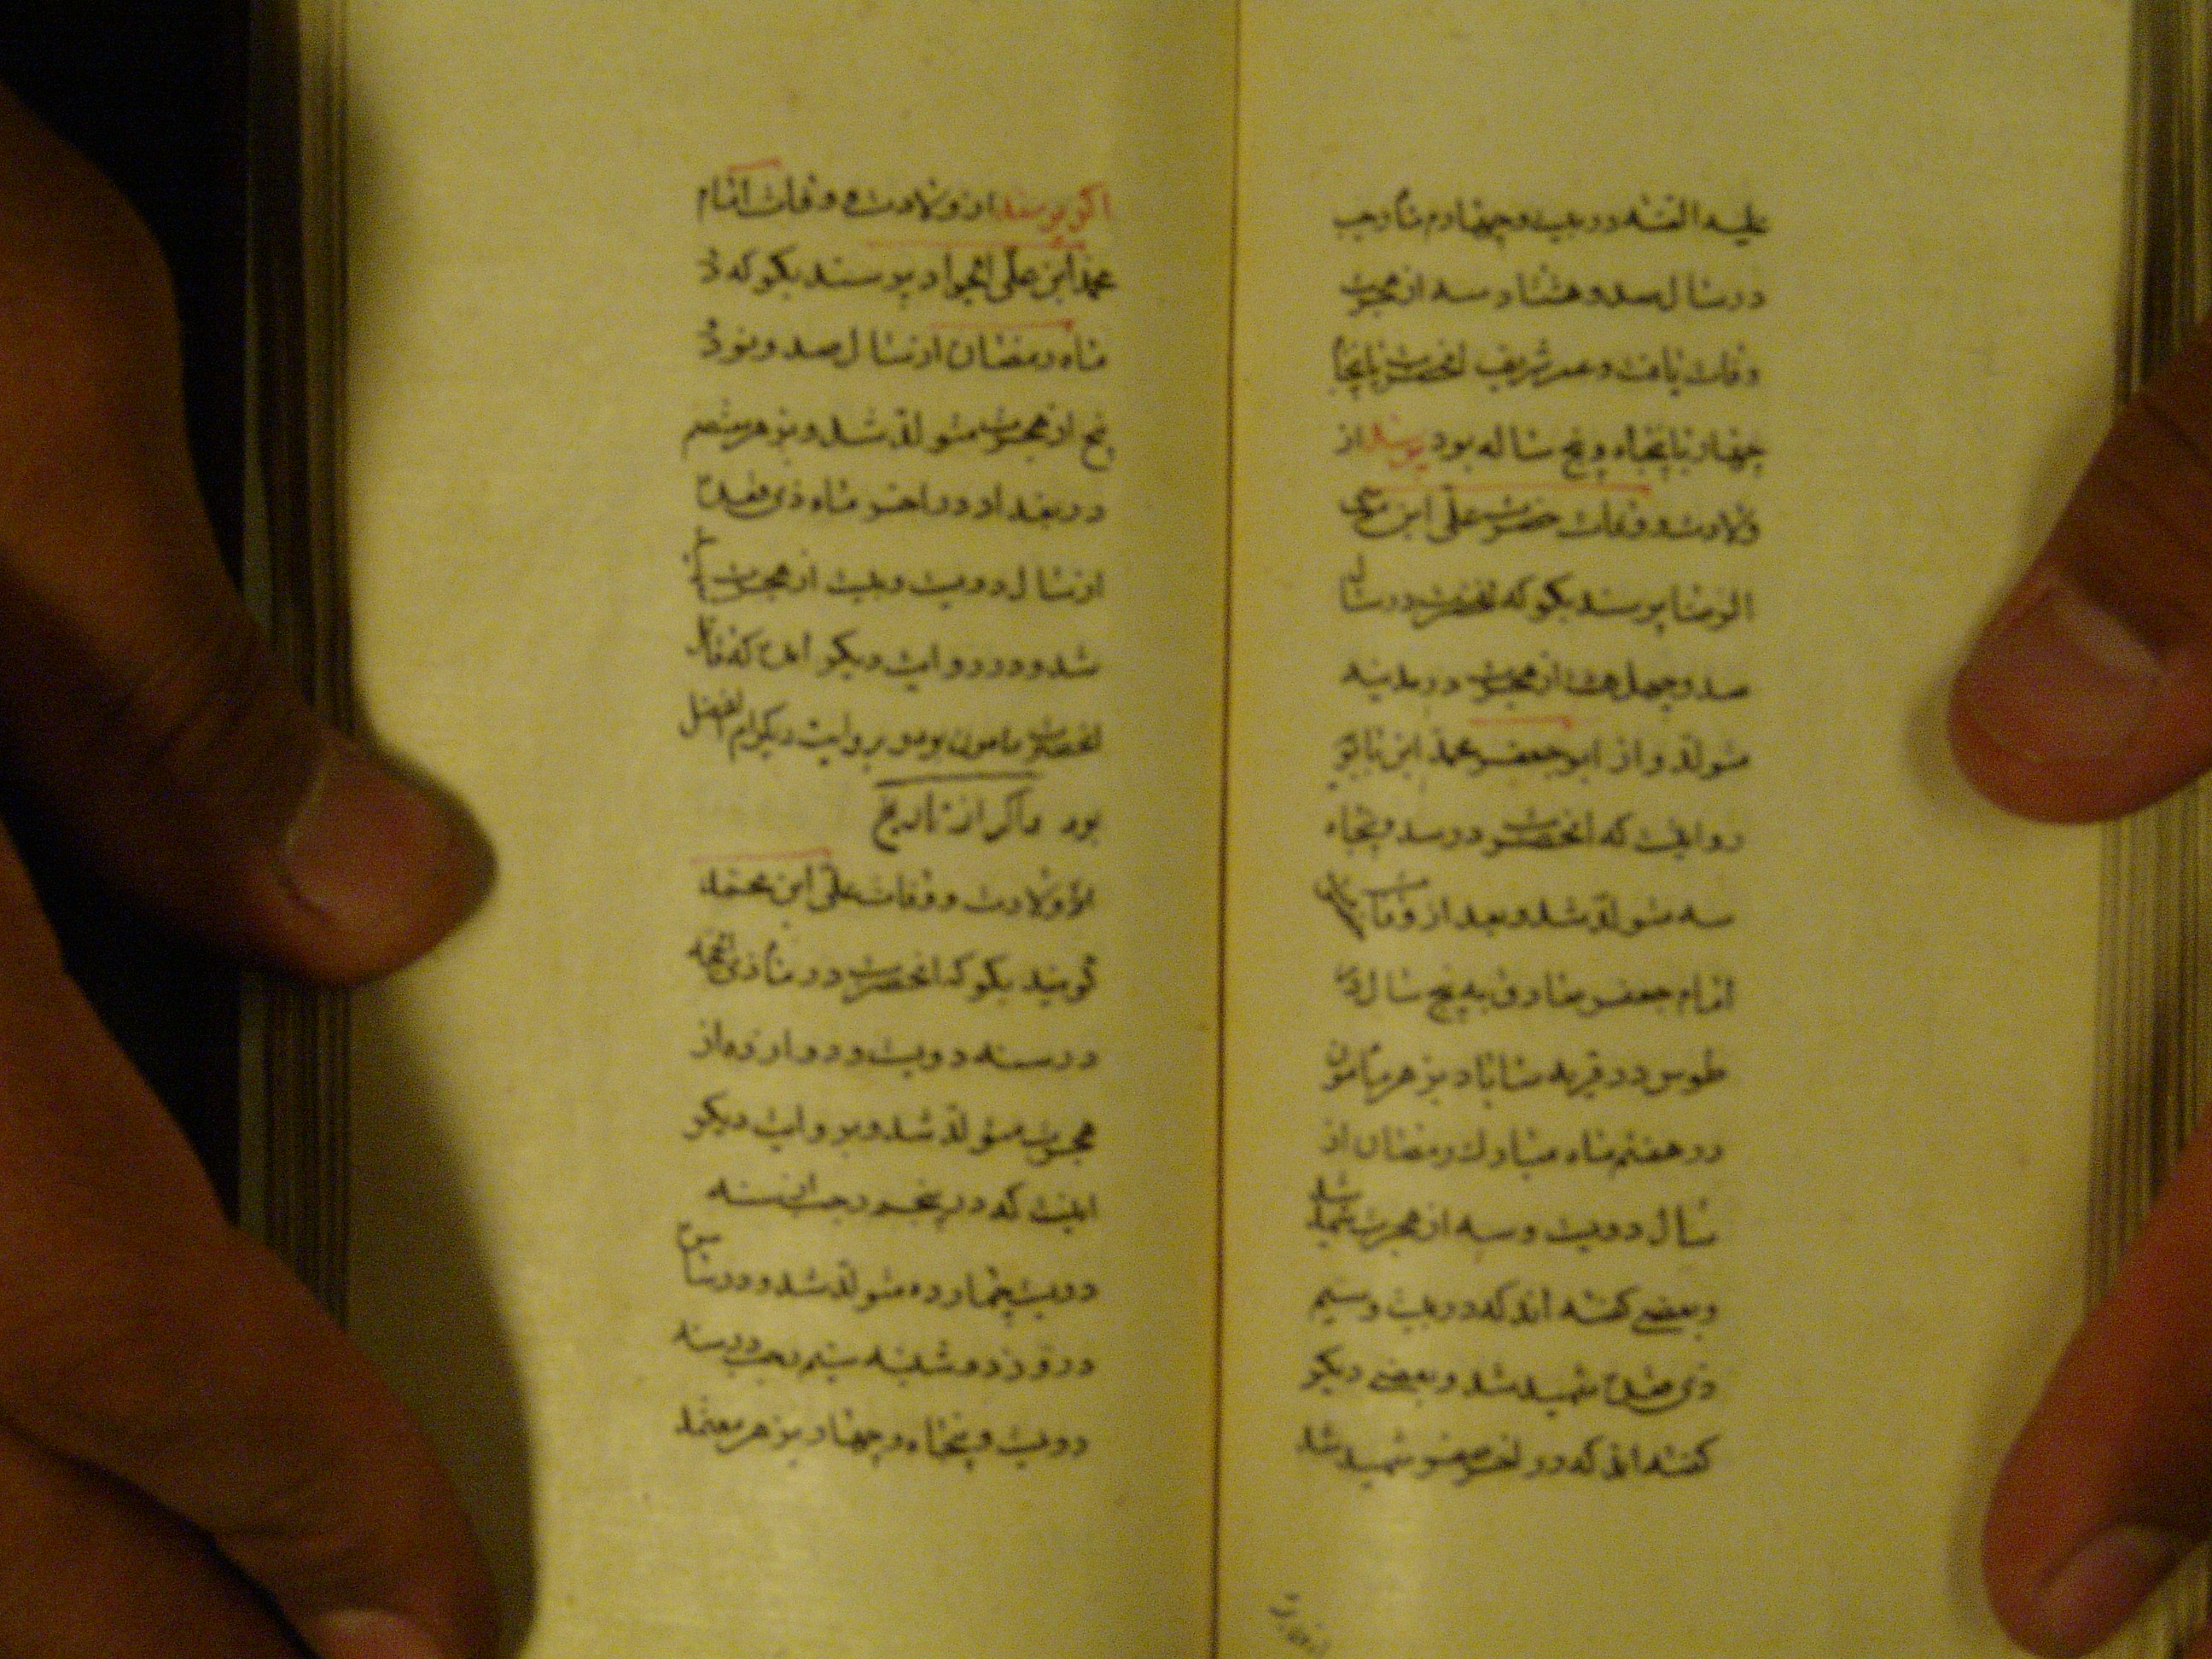 علیه اللعنه در بیست و چهارم ماه رجب
در سال صد و هشتاد و سه از هجرت
وفات یافت و عمر شریف انحضرت با پنجاه
چهار یا پنجاه و پنج ساله بود پرسند از
ولادت و وفات حضرت علی ابن موسی
الرضا پرسند بگو که انحضرت در سال
صد و چهل هشت از هجرت در مدینه
متولد و از ابو جعفر محمد ابن بابویه
روایت که انحضرت در سد و پنجاه
سه متولد شد و بعد از وفات
امام جعفر صادق به پنج سال در
طوس در قریه سناباد بزهر مامون
در هفتم ماه مبارک رمضان از
سال دویست و سه از هجرت شهید شد
و بعضی گفته اند که در بیست و سیم
ذی قعده شهید شد و بعضی دیگر
گفته اند که در اخر صفر شهید شد
اگر پرسند از ولادت و وفات امام
محمد ابن علی الجواد پرسند بگو که در
ماه رمضان از سال صد و نود و
پنج از هجرت متولد شد و بزهر معتصم
در بغداد در اخر ماه ذی قعده
از سال دویست و بیست از هجرت
شد و در روایت دیگر امده که قاتل
انحضرت مامون بود و بروایت دیگر ام الفضل
بود و اگر از تاریخ
ولادت و وفات علی ابن محمد
گویند بگو که انحضرت در ماه ذی حجه
در سنه دویست و دوازده از
هجرت متولد شد و بروایت دیگر
اینست که در پنجم رجب از سنه
دویست چهارده متولد شد و در
در روز دوشنبه سیم رجب در سنه
دویست و پنجاه و چهار بزهر معتمد